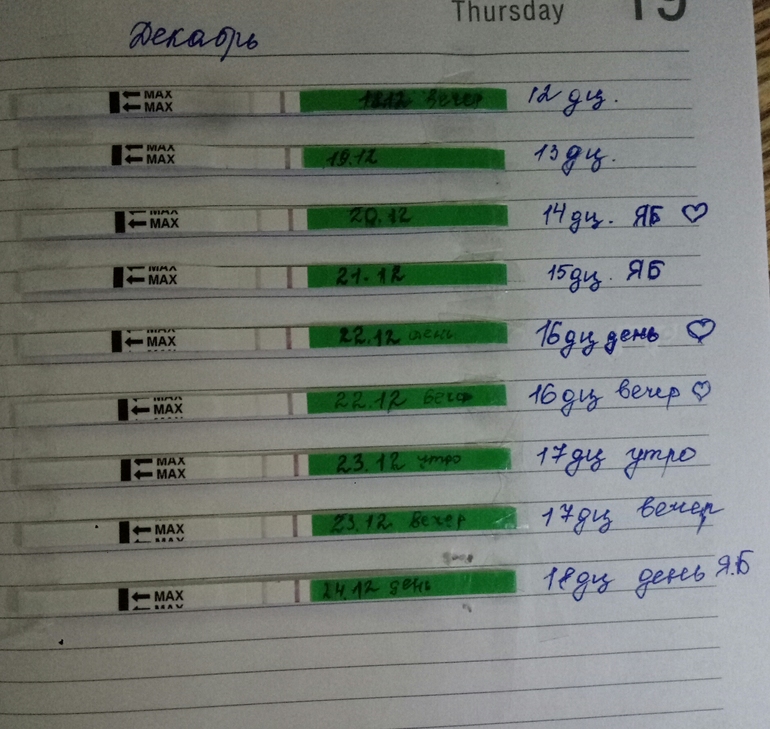 Thursday 19
Декабрь
MAX
MAX 18.12 вечер 12 дц.
MAX
MAX 19.12 13 дц.
MAX
MAX 20.12 14 дц. ЯБ ♡
MAX
MAX 21.12 15 дц. ЯБ
MAX
MAX 22.12 день 16 дц день ♡
MAX
MAX 22.12 вечер 16 дц вечер ♡
MAX
MAX 23.12 утро 17 дц утро
MAX
MAX 23.12 вечер 17 дц вечер
MAX
MAX 24.12 день 18 дц день Я.Б